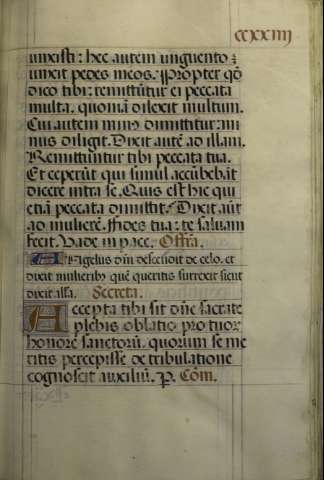 ccxxiiij
unxisti: hec autem unguento
unxit pedes meos. Propter qđ
dico tibi: remittūtur ei peccata
multa. quoniā dilexit multum.
Cui autem min9 dimittitur: mi
nus diligit. Dixit autē ad illam.
Remittuntur tibi peccata tua.
Et ceperūt qui simul accūbebāt
dicere intra se. Quis est hic qui
etiā peccata dimittit. Dixit aūt
ad mulierē. Fides tua te saluam
fecit. Vade in pace. Offra.
Angelus dñi descendit de celo. et
dixit mulierib9 quē queritis surrexit sicut
dixit alla. Secreta.
Accepta tibi sit dñe sacrate
plebis oblatio pro tuor
honore sanctorū. quorum se me
ritis percepisse de tribulatione
cognoscit auxiliū. P. Com.